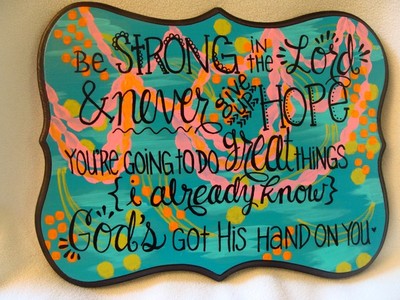 Be STRONG in the Lord
& never give up HOPE
YOU'RE GOING TO DO great THINGS
{i already know}
God's GOT HIS HAND ON YOU